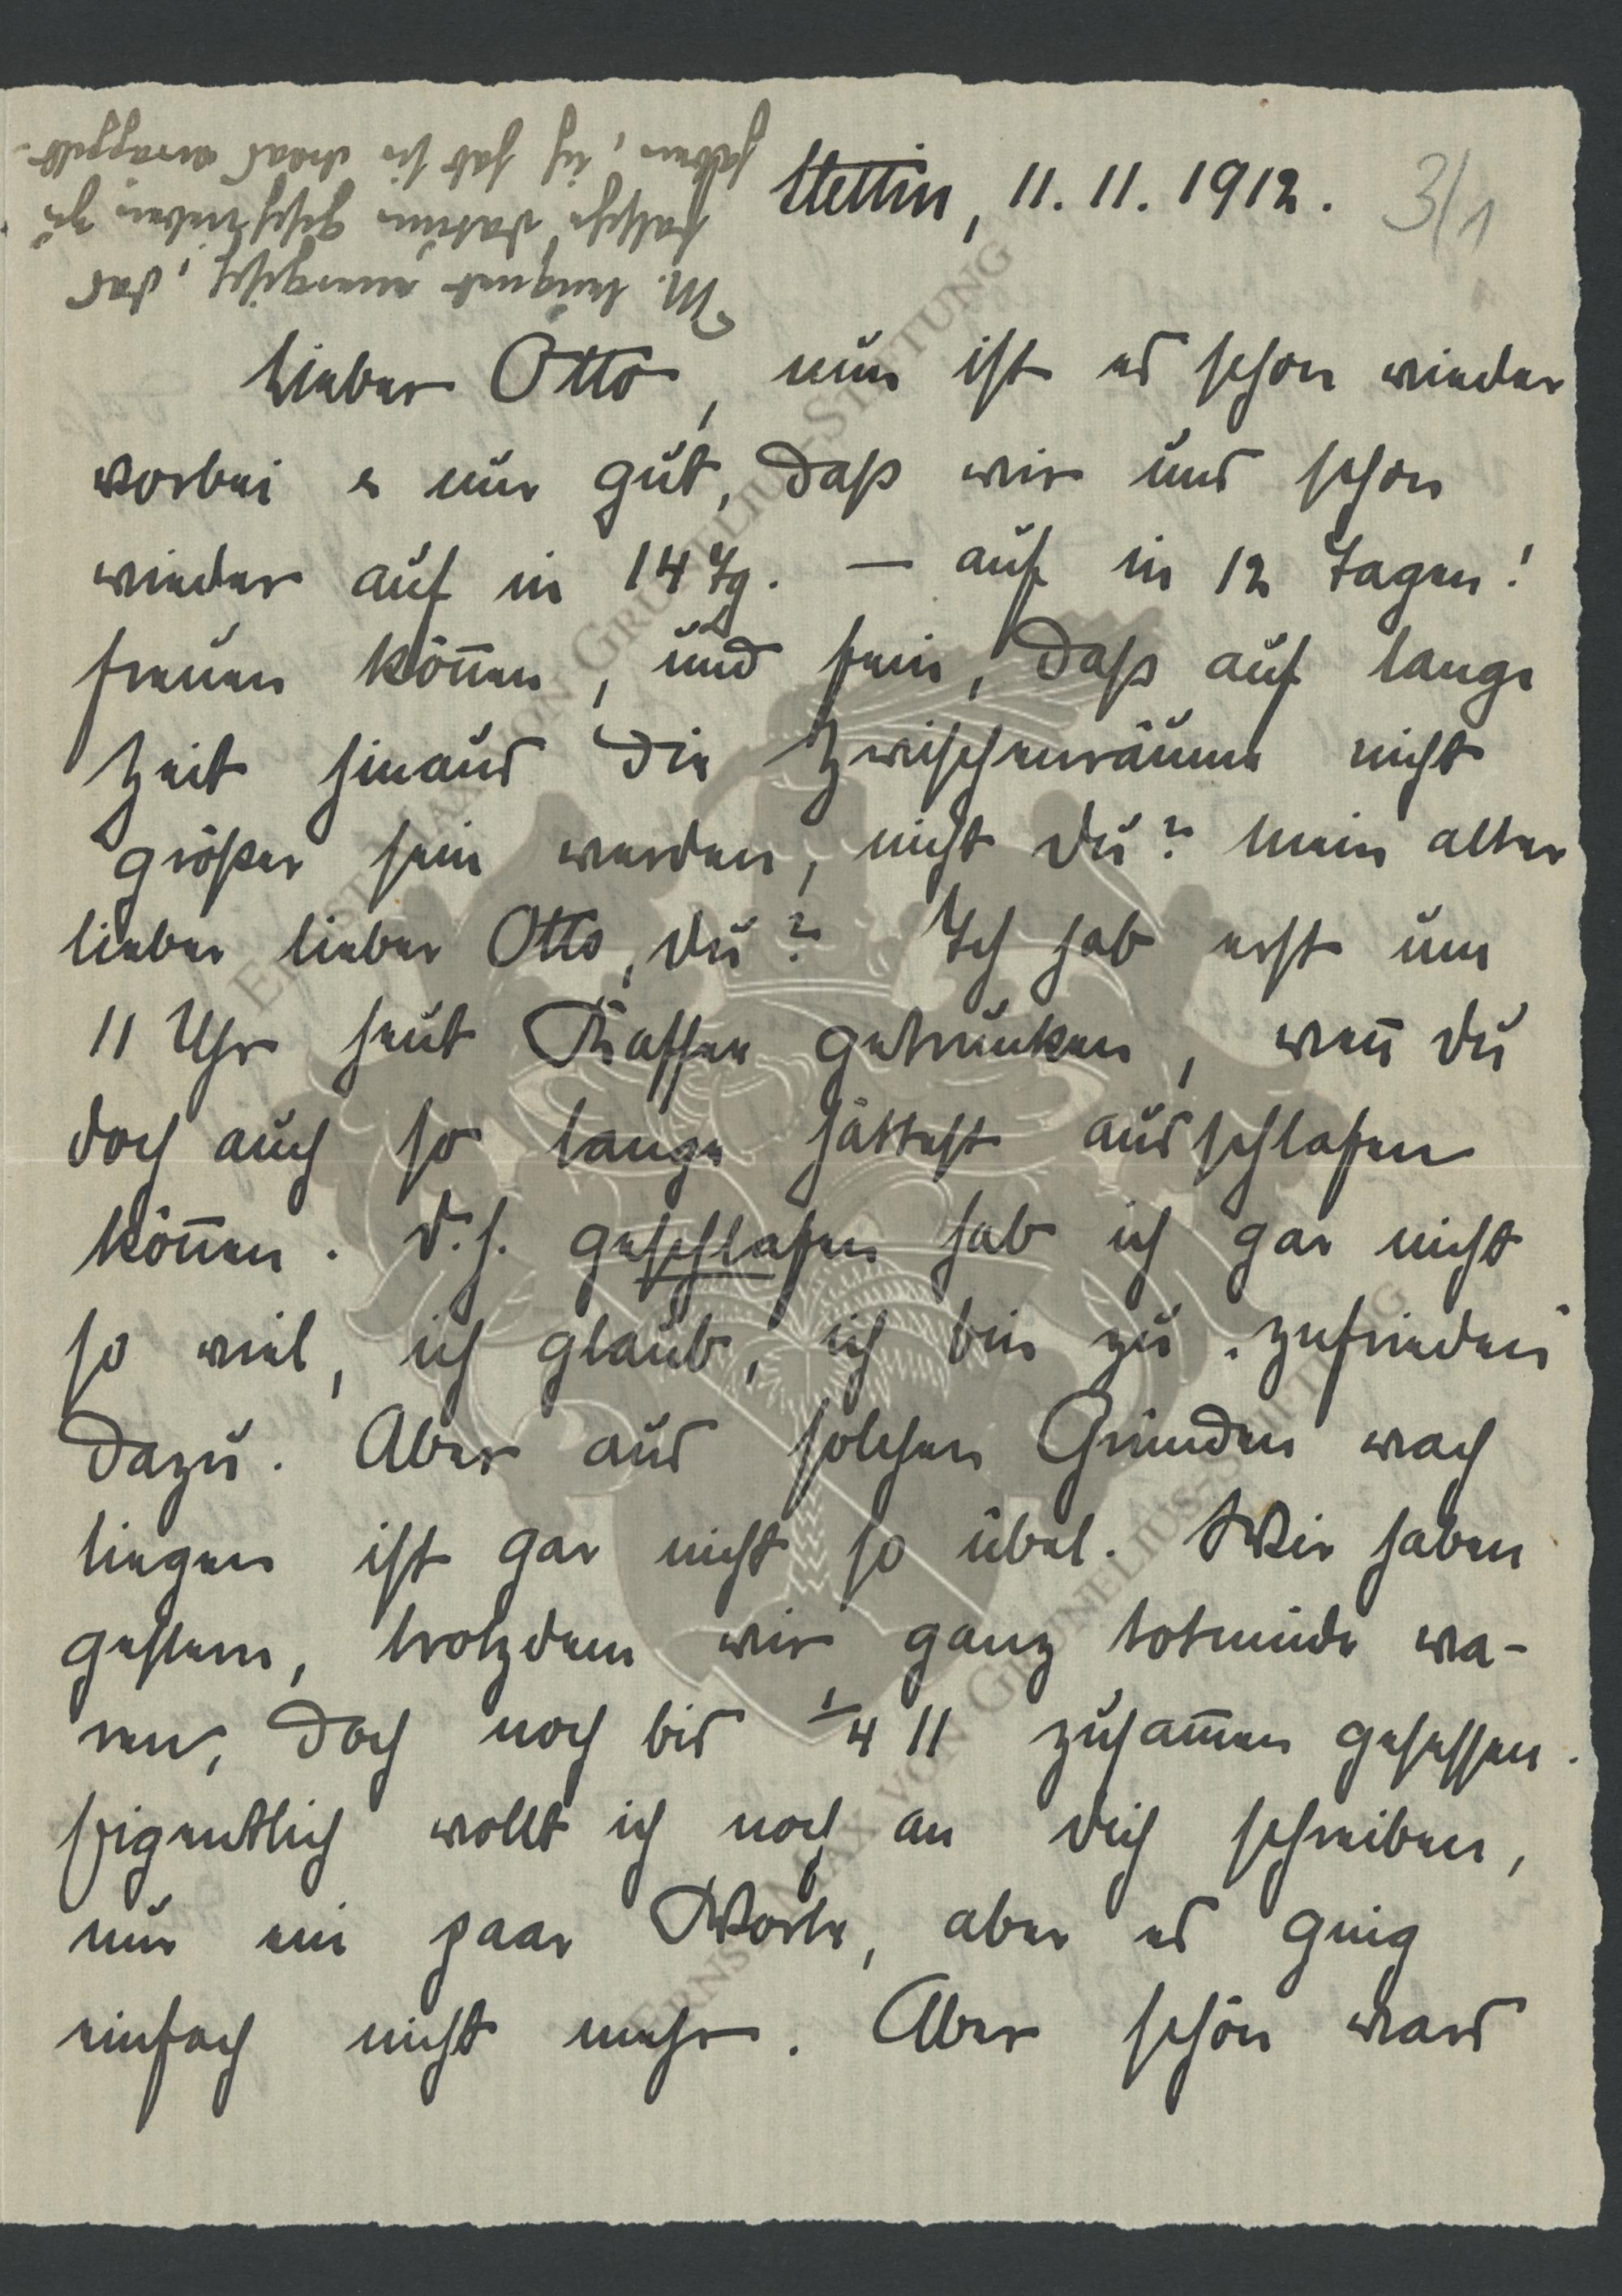 Stettin, 11. 11. 1912. 3/1
M. leugnet energisch, das
falsche Datum geschrieben zu
haben, ich hab sie drauf
Lieber Otto, nun ist es schon wieder
vorbei u nur gut, daß wir uns schon
wieder auf in 14 Tg. — auf in 12 Tagen!
freuen können, und fein, daß auf lange
Zeit hinaus die Zwischenräume nicht
größer sein werden, nicht Du? Mein alter
lieber lieber Otto, Du? Ich hab erst um
11 Uhr heut Kaffee getrunken, wenn Du
doch auch so lange hättest ausschlafen
können. D.h. geschlafen hab ich gar nicht
so viel, ich glaub, ich bin zu „zufrieden“
dazu. Aber aus solchen Gründen wach
liegen ist gar nicht so übel. Wir haben
gestern, trotzdem wir ganz totmüde wa-
ren, doch noch bis 1/4 11 zusammen gesessen.
Eigentlich wollt ich noch an Dich schreiben,
nur ein paar Worte, aber es ging
einfach nicht mehr. Aber schön wars
ERNST MAX VON GRUNELIUS-STIFTUNG
ERNST MAX VON GRUNELIUS-STIFTUNG